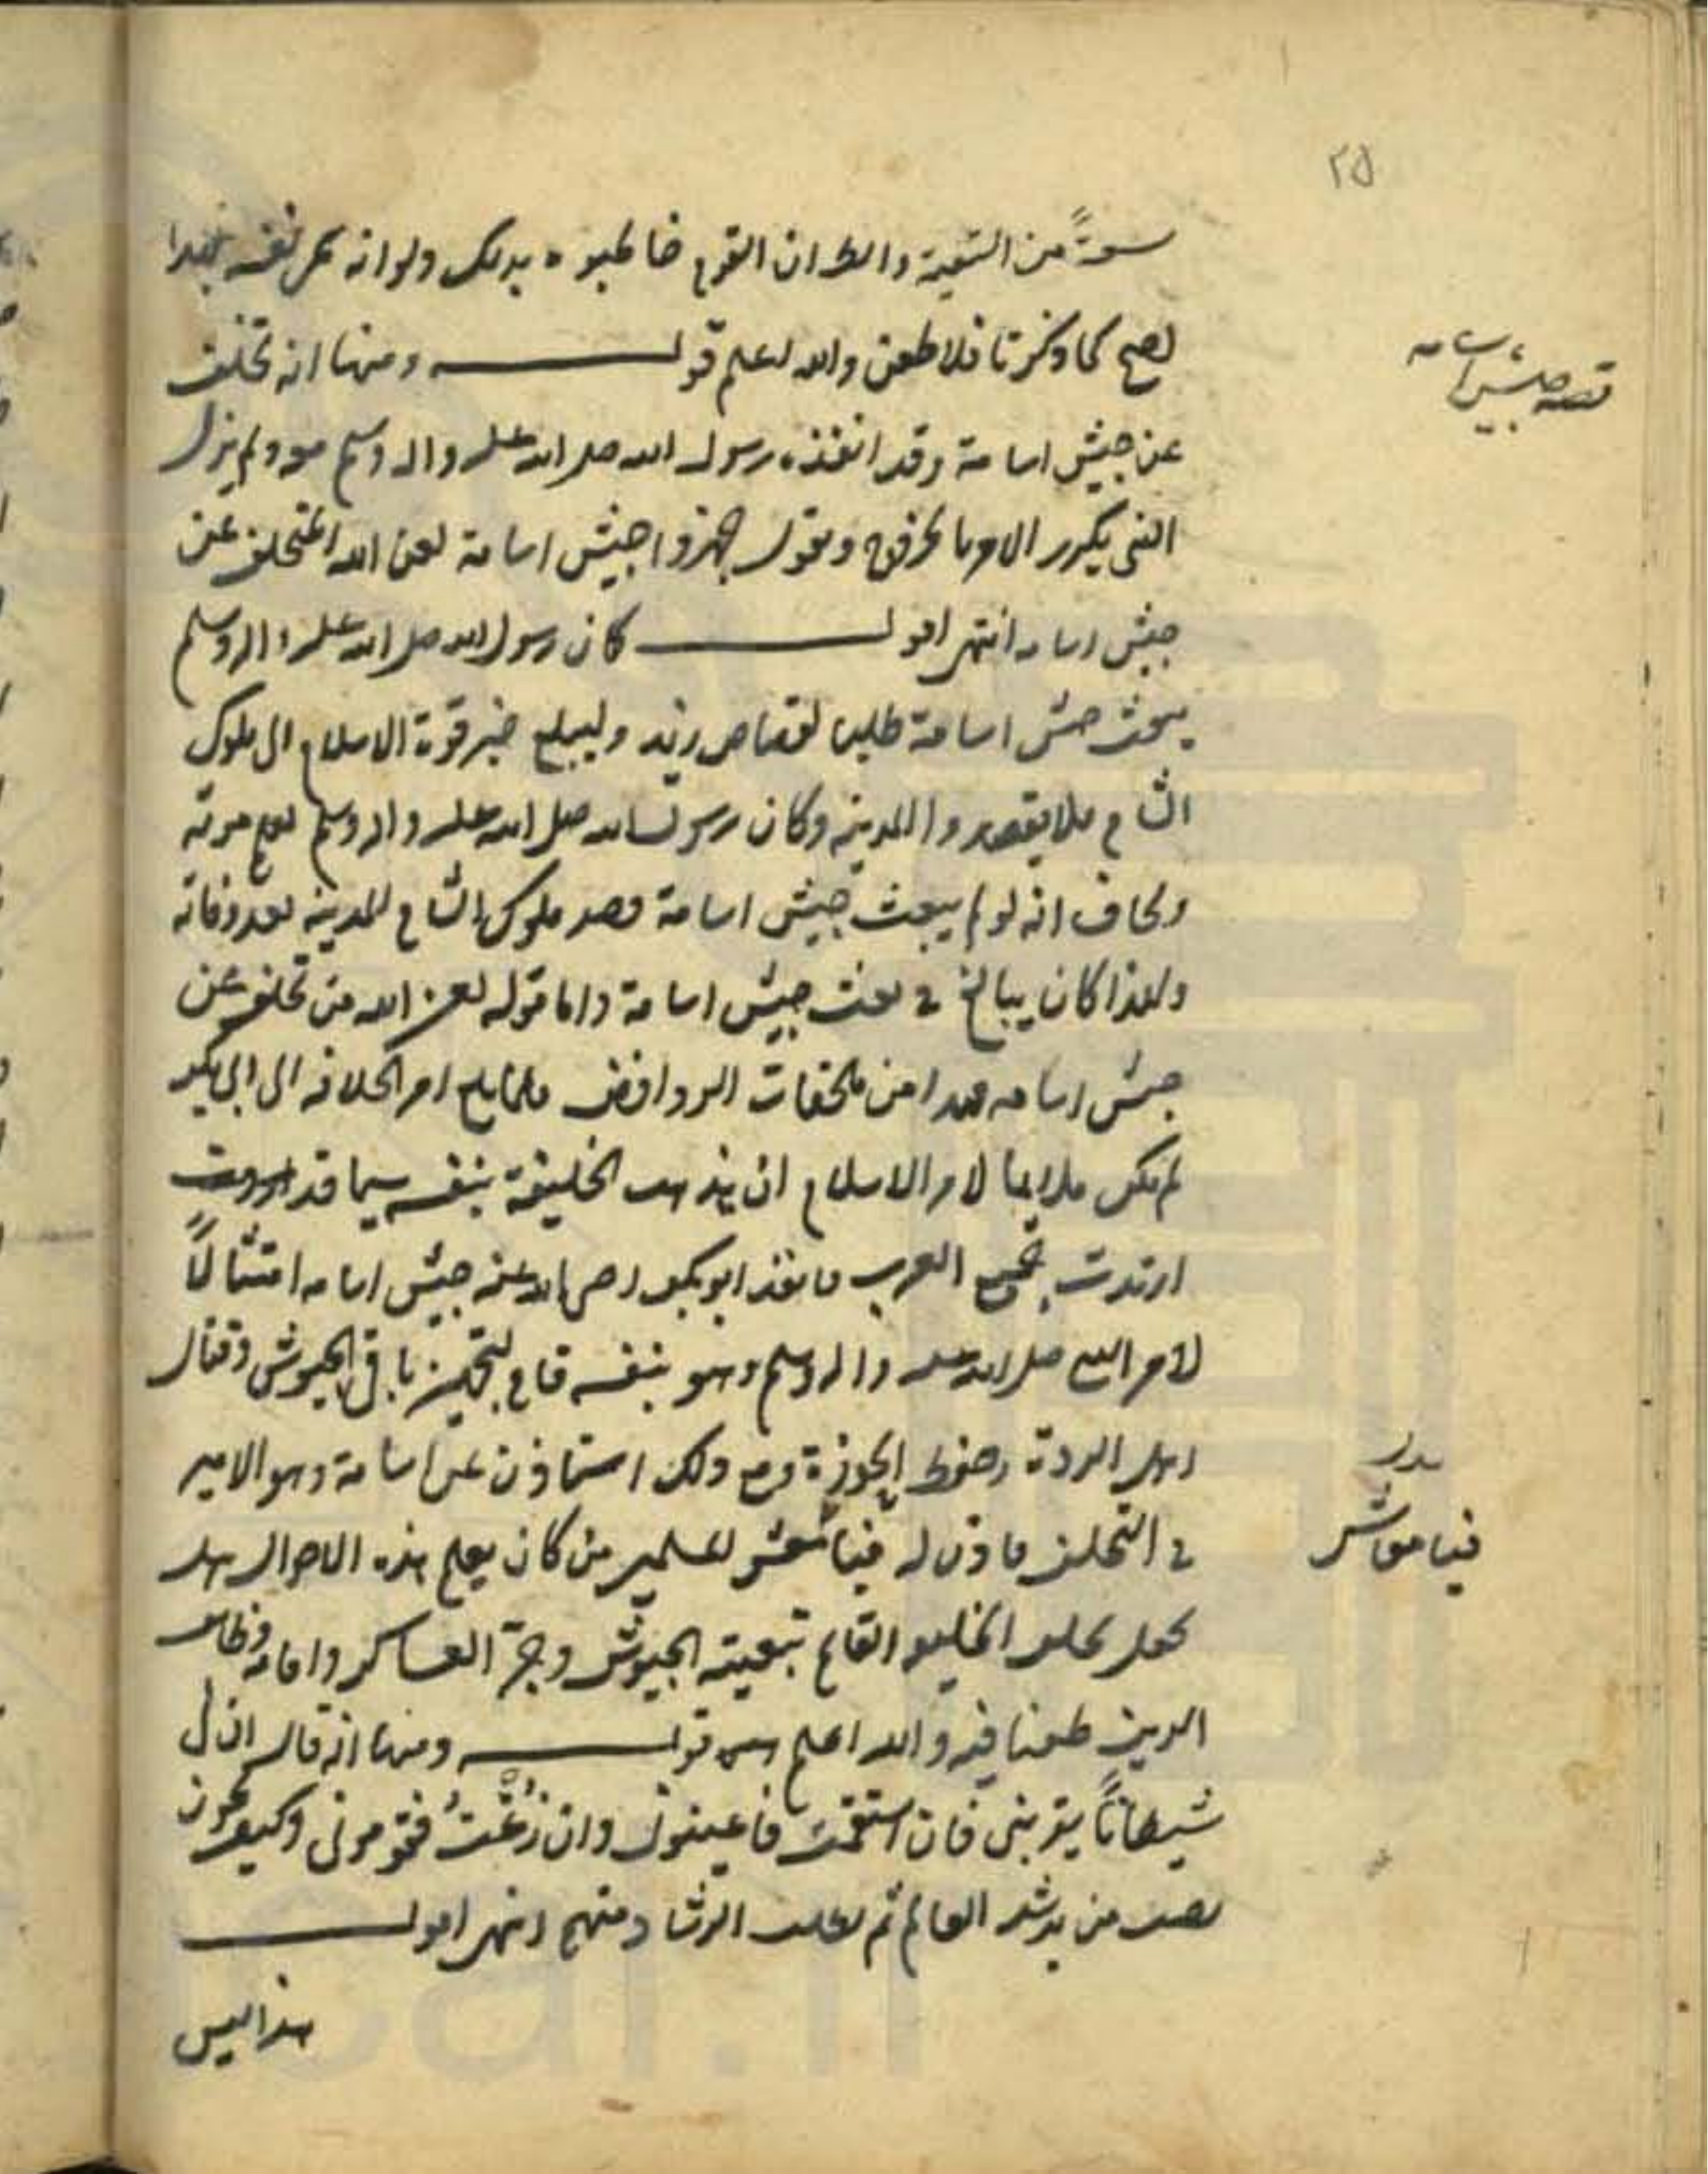 ٢٥
سعة من التسمية والظ ان القوم خاطبوه بذلك ولو انه سمى نفسه بهذا
لصح كما ذكرنا فلا طعن والله اعلم قوله ومنها انه تخلف
قصه جيش اسامه
عن جيش اسامة وقد انفذه رسول الله صلى الله عليه واله وسلم معه ولم يزل
النبى يكرر الامر بالخروج ويقول جهزوا جيش اسامة لعن الله المتخلف عن
جيش اسامه انتهى اقول كان رسول الله صلى الله عليه واله وسلم
يبعث جيش اسامة طلبا لقصاص زيد وليبلغ خبر قوة الاسلام الى ملوك
الشام فلا يقصدوا المدينه وكان رسول الله صلى الله عليه واله وسلم يعلم موته
ويخاف انه لو لم يبعث جيش اسامة قصد ملوك الشام المدينه بعد وفاته
ولهذا كان يبالغ فى بعث جيش اسامة واما قوله لعن الله من تخلف عن
جيش اسامه فهذا من ملحقات الروافض فلما بلغ امر الخلافه الى ابى بكر
لم يكن ملايما لامر الاسلام ان يذهب الخليفة بنفسه سيما قد
ارتدت جميع العرب فانفذ ابو بكر رضى الله عنه جيش اسامه امتثالًا
لامر النبى صلى الله عليه واله وسلم وهو بنفسه قام لتجهيز باقى الجيوش وقتال
اهل الردة وحفظ الحوزة ومع ذلك استاذن عن اسامة وهو الامير
بدل
فى التخلف فاذن له فيا معشر المسلمين من كان يعلم هذه الاحوال هل
فيا معاشر
يجعل تخلف الخليفه القايم بتعبية الجيوش وجرّ العساكر واقامة وظائف
الدين طعنا فيه والله اعلم قوله ومنها انه قال ان لى
شيطانًا يعترينى فان استقمت فاعينونى وان زُغْتُ فقومونى وكيف يجوز
نصب من يرشد العالم ثم يطلب الرشاد منهم انتهى اقول
هذا ليس